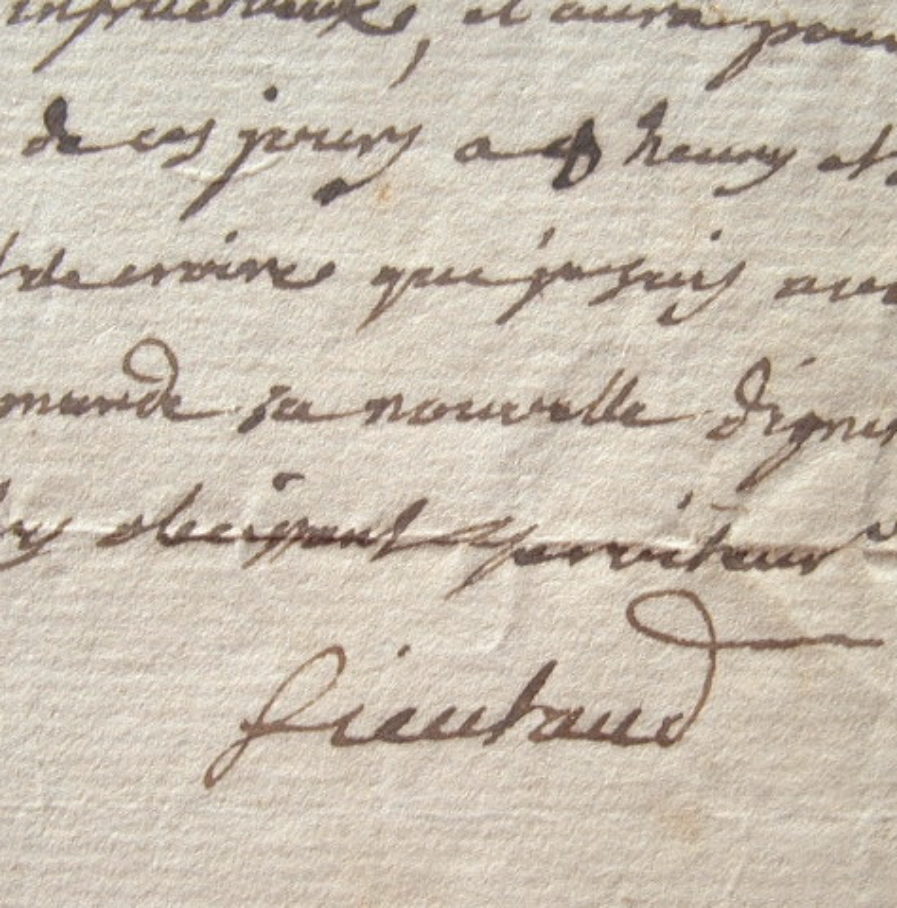 infructueux, et aura pour
de ces jours a 8 heures et
de croire que je suis avec
mande sa nouvelle digni
obeissant serviteur
Lieutaud